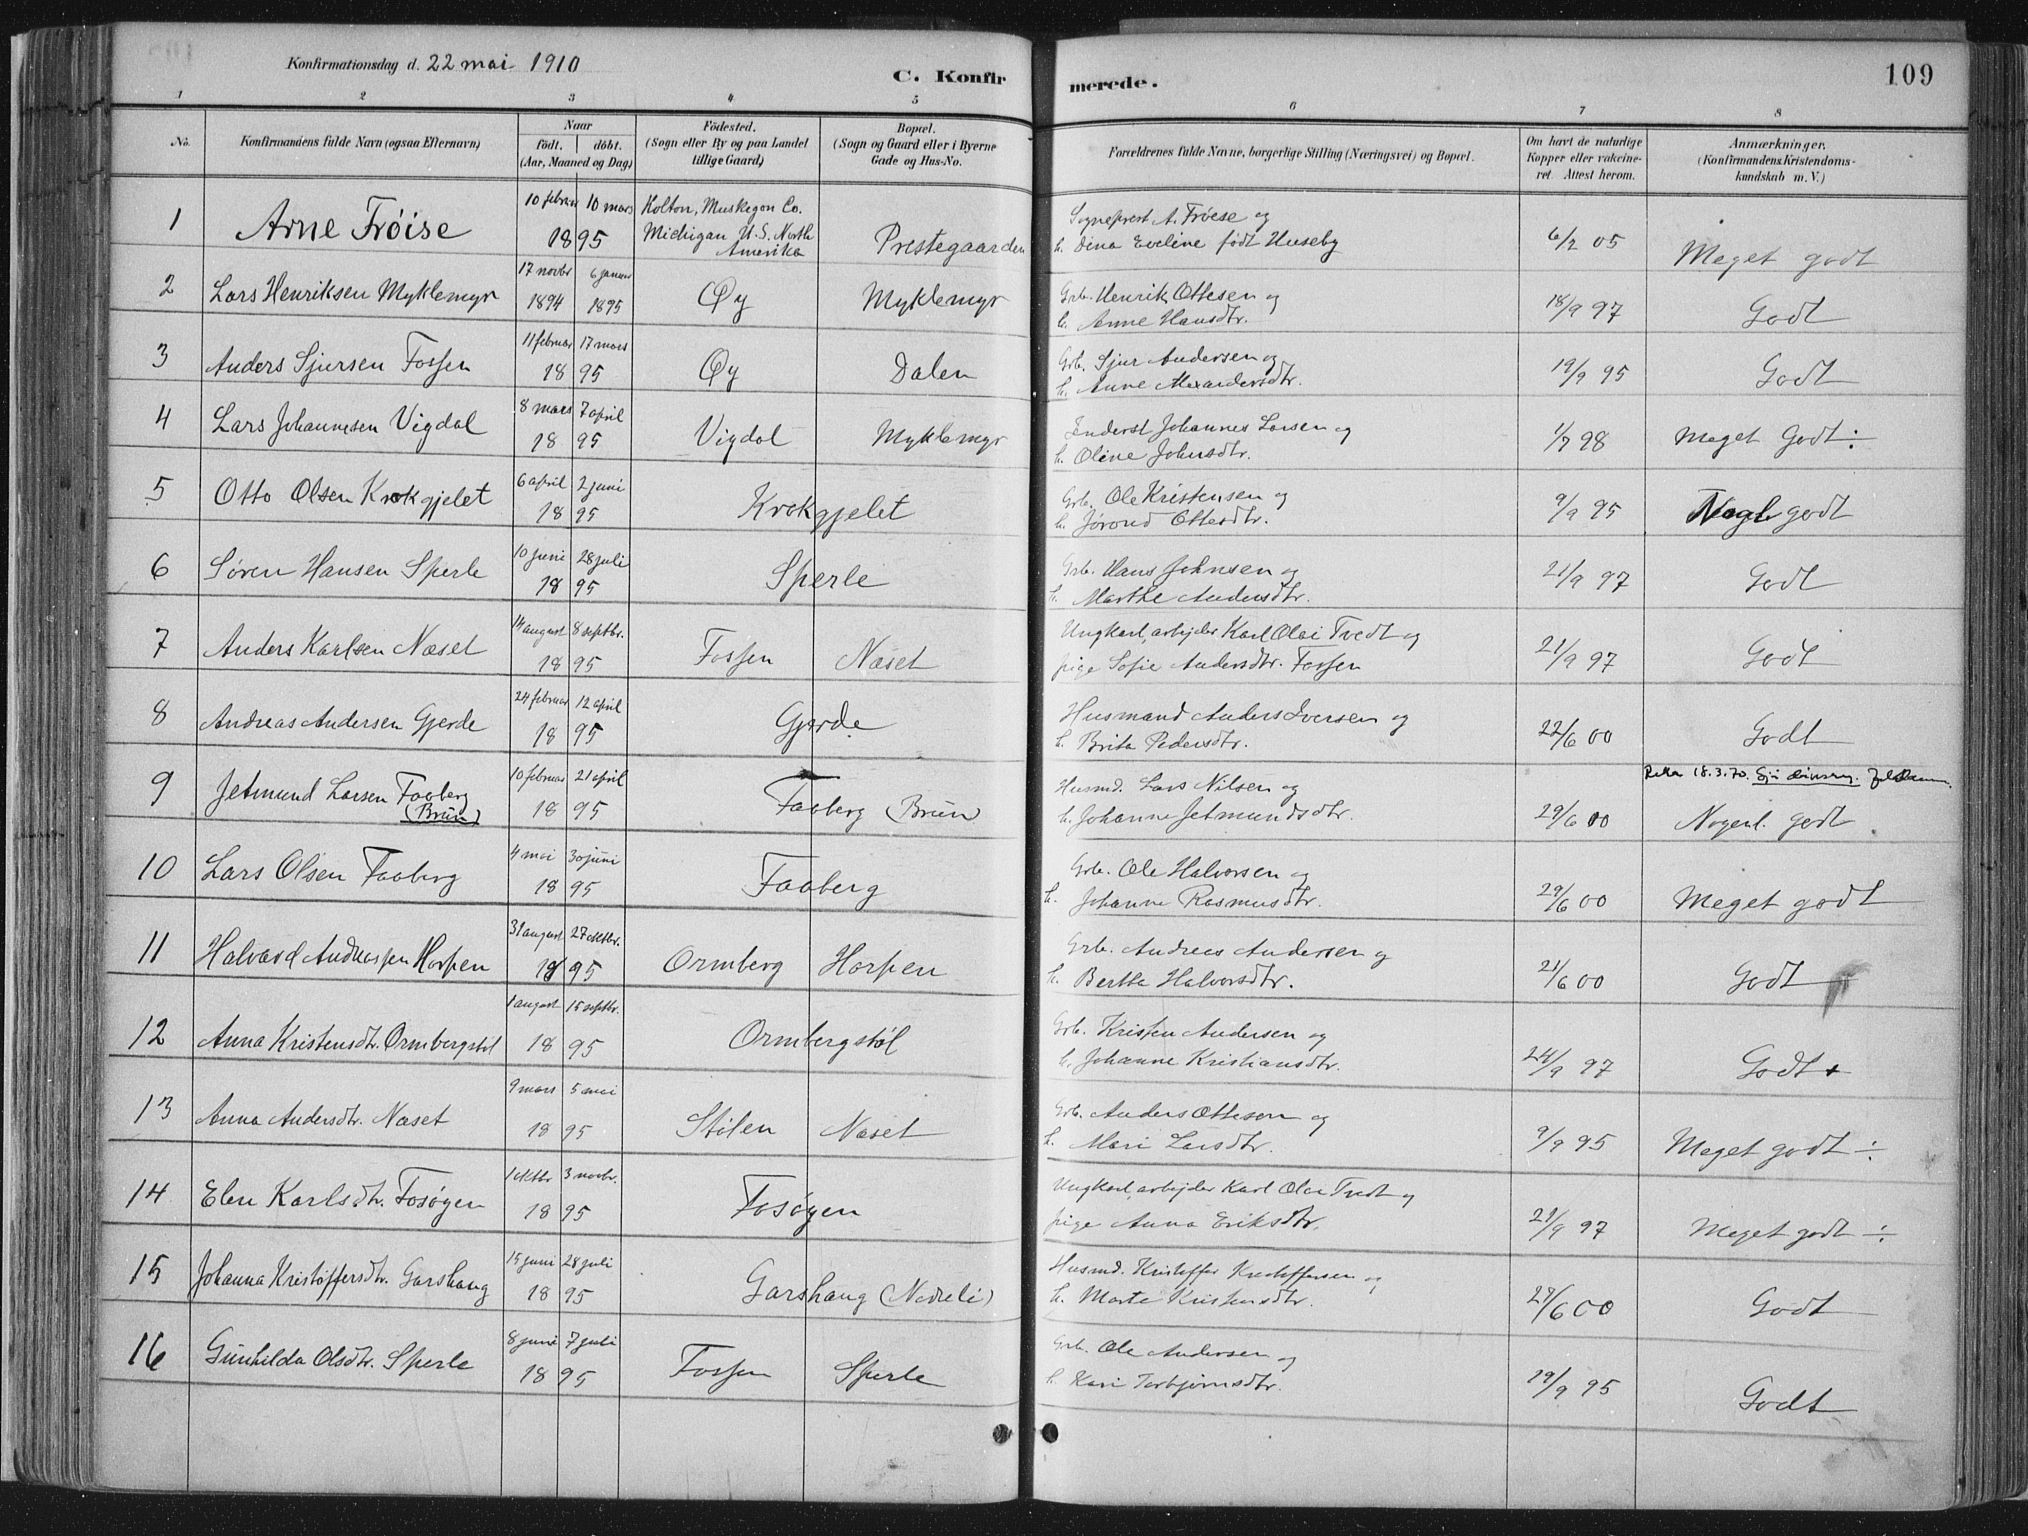 Konfirmationsdag d. 22 mai 1910
C. Konfirmerede.
109
1 2 3 4 5 6 7 8
No. Konfirmandens fulde Navn (ogsaa Efternavn) Naar födt. döbt. (Aar, Maaned og Dag) Födested. (Sogn eller By og paa Landet tillige Gaard) Bopæl. (Sogn og Gaard eller i Byerne Gade og Hus-No. Forældrenes fulde Navne, borgerlige Stilling (Næringsvei) og Bopæl. Om havt de naturlige Kopper eller vakcineret. Attest herom. Anmærkninger. (Konfirmandens Kristendomskundskab m. V.)
1 Arne Frøise 10 februar 10 mars 1895 Holton, Muskegon Co. Michigan U.S. North Amerika Prestegaarden Sogneprest A. Frøese og h. Dina Eveline født Huseby 6/2 05 Meget godt
2 Lars Henriksen Myklemyr 17 novbr 1894 6 januar 1895 Øy Myklemyr Grb. Henrik Ottesen og h. Anne Hansdtr. 18/9 97 Godt
3 Anders Sjursen Fossen 11 februar 17 mars 1895 Øy Dalen Grb. Sjur Andersen og h. Anne Alexandersdtr. 19/9 95 Godt
4 Lars Johannesen Vigdal 8 mars 7 april 1895 Vigdal Myklemyr Inderst Johannes Larsen og h. Oline Johnsdtr. 1/7 98 Meget Godt ÷
5 Otto Olsen Krokgjelet 6 april 2 juni 1895 Krokgjelet Grb. Ole Kristensen og h. Jørond Ottesdtr. 9/9 95 godt
6 Søren Hansen Sperle 10 juni 28 juli 1895 Sperle Grb. Hans Johnsen og h. Marthe Andersdtr. 21/9 97 Godt
7 Anders Karlsen Næset 14 august 8 septbr. 1895 Fossen Næset Ungkarl, arbejder Karl Olai Tvedt og pige Sofie Andersdtr. Fossen 21/9 97 Godt
8 Andreas Andersen Gjerde 24 februar 12 april 1895 Gjerde Husmand Anders Iversen og h. Brita Pedersdtr. 22/6 00 Godt
9 Jetmund Larsen Faaberg (Brun) 10 februar 21 april 1895 Faaberg (Brun) Husmd. Lars Nilsen og h. Johanne Jetmundsdtr. 29/6 00 18.3.70. Nogenl. godt
10 Lars Olsen Faaberg 4 mai 30 juni 1895 Faaberg Grb. Ole Halvorsen og h. Johanne Rasmusdtr. 29/6 00 Meget godt
11 Halvard Andreassen Horpen 31 august 27 oktbr. 1895 Ormberg Horpen Grb. Andreas Andersen og h. Bertha Halvorsdtr. 21/6 00 Godt +
12 Anna Kristensdtr. Ormbergstøl 1 august 15 septbr. 1895 Ormbergstøl Grb. Kristen Andersen og h. Johanne Kristiansdtr. 24/9 97 Godt +
13 Anna Andersdtr. Næset 9 mars 5 mai 1895 Stølen Næset Grb. Anders Ottesen og h. Mari Larsdtr. 9/9 95 Meget godt ÷
14 Elen Karlsdtr. Fosøyen 1 oktbr 3 novbr. 1895 Fosøyen Ungkarl, arbejder Karl Olai Tvedt og pige Anna Eriksdtr. 21/9 97 Meget godt ÷
15 Johanna Kristøffersdtr. Garshaug 15 juni 28 juli 1895 Garshaug (Nedreli) Husmd. Kristoffer Kristoffersen og h. Marte Kristensdtr. 29/6 00 Godt
16 Gunhilda Olsdtr. Sperle 8 juni 7 juli 1895 Fossen Sperle Grb. Ole Andersen og h. Kari Torbjørnsdtr. 19/9 95 Godt